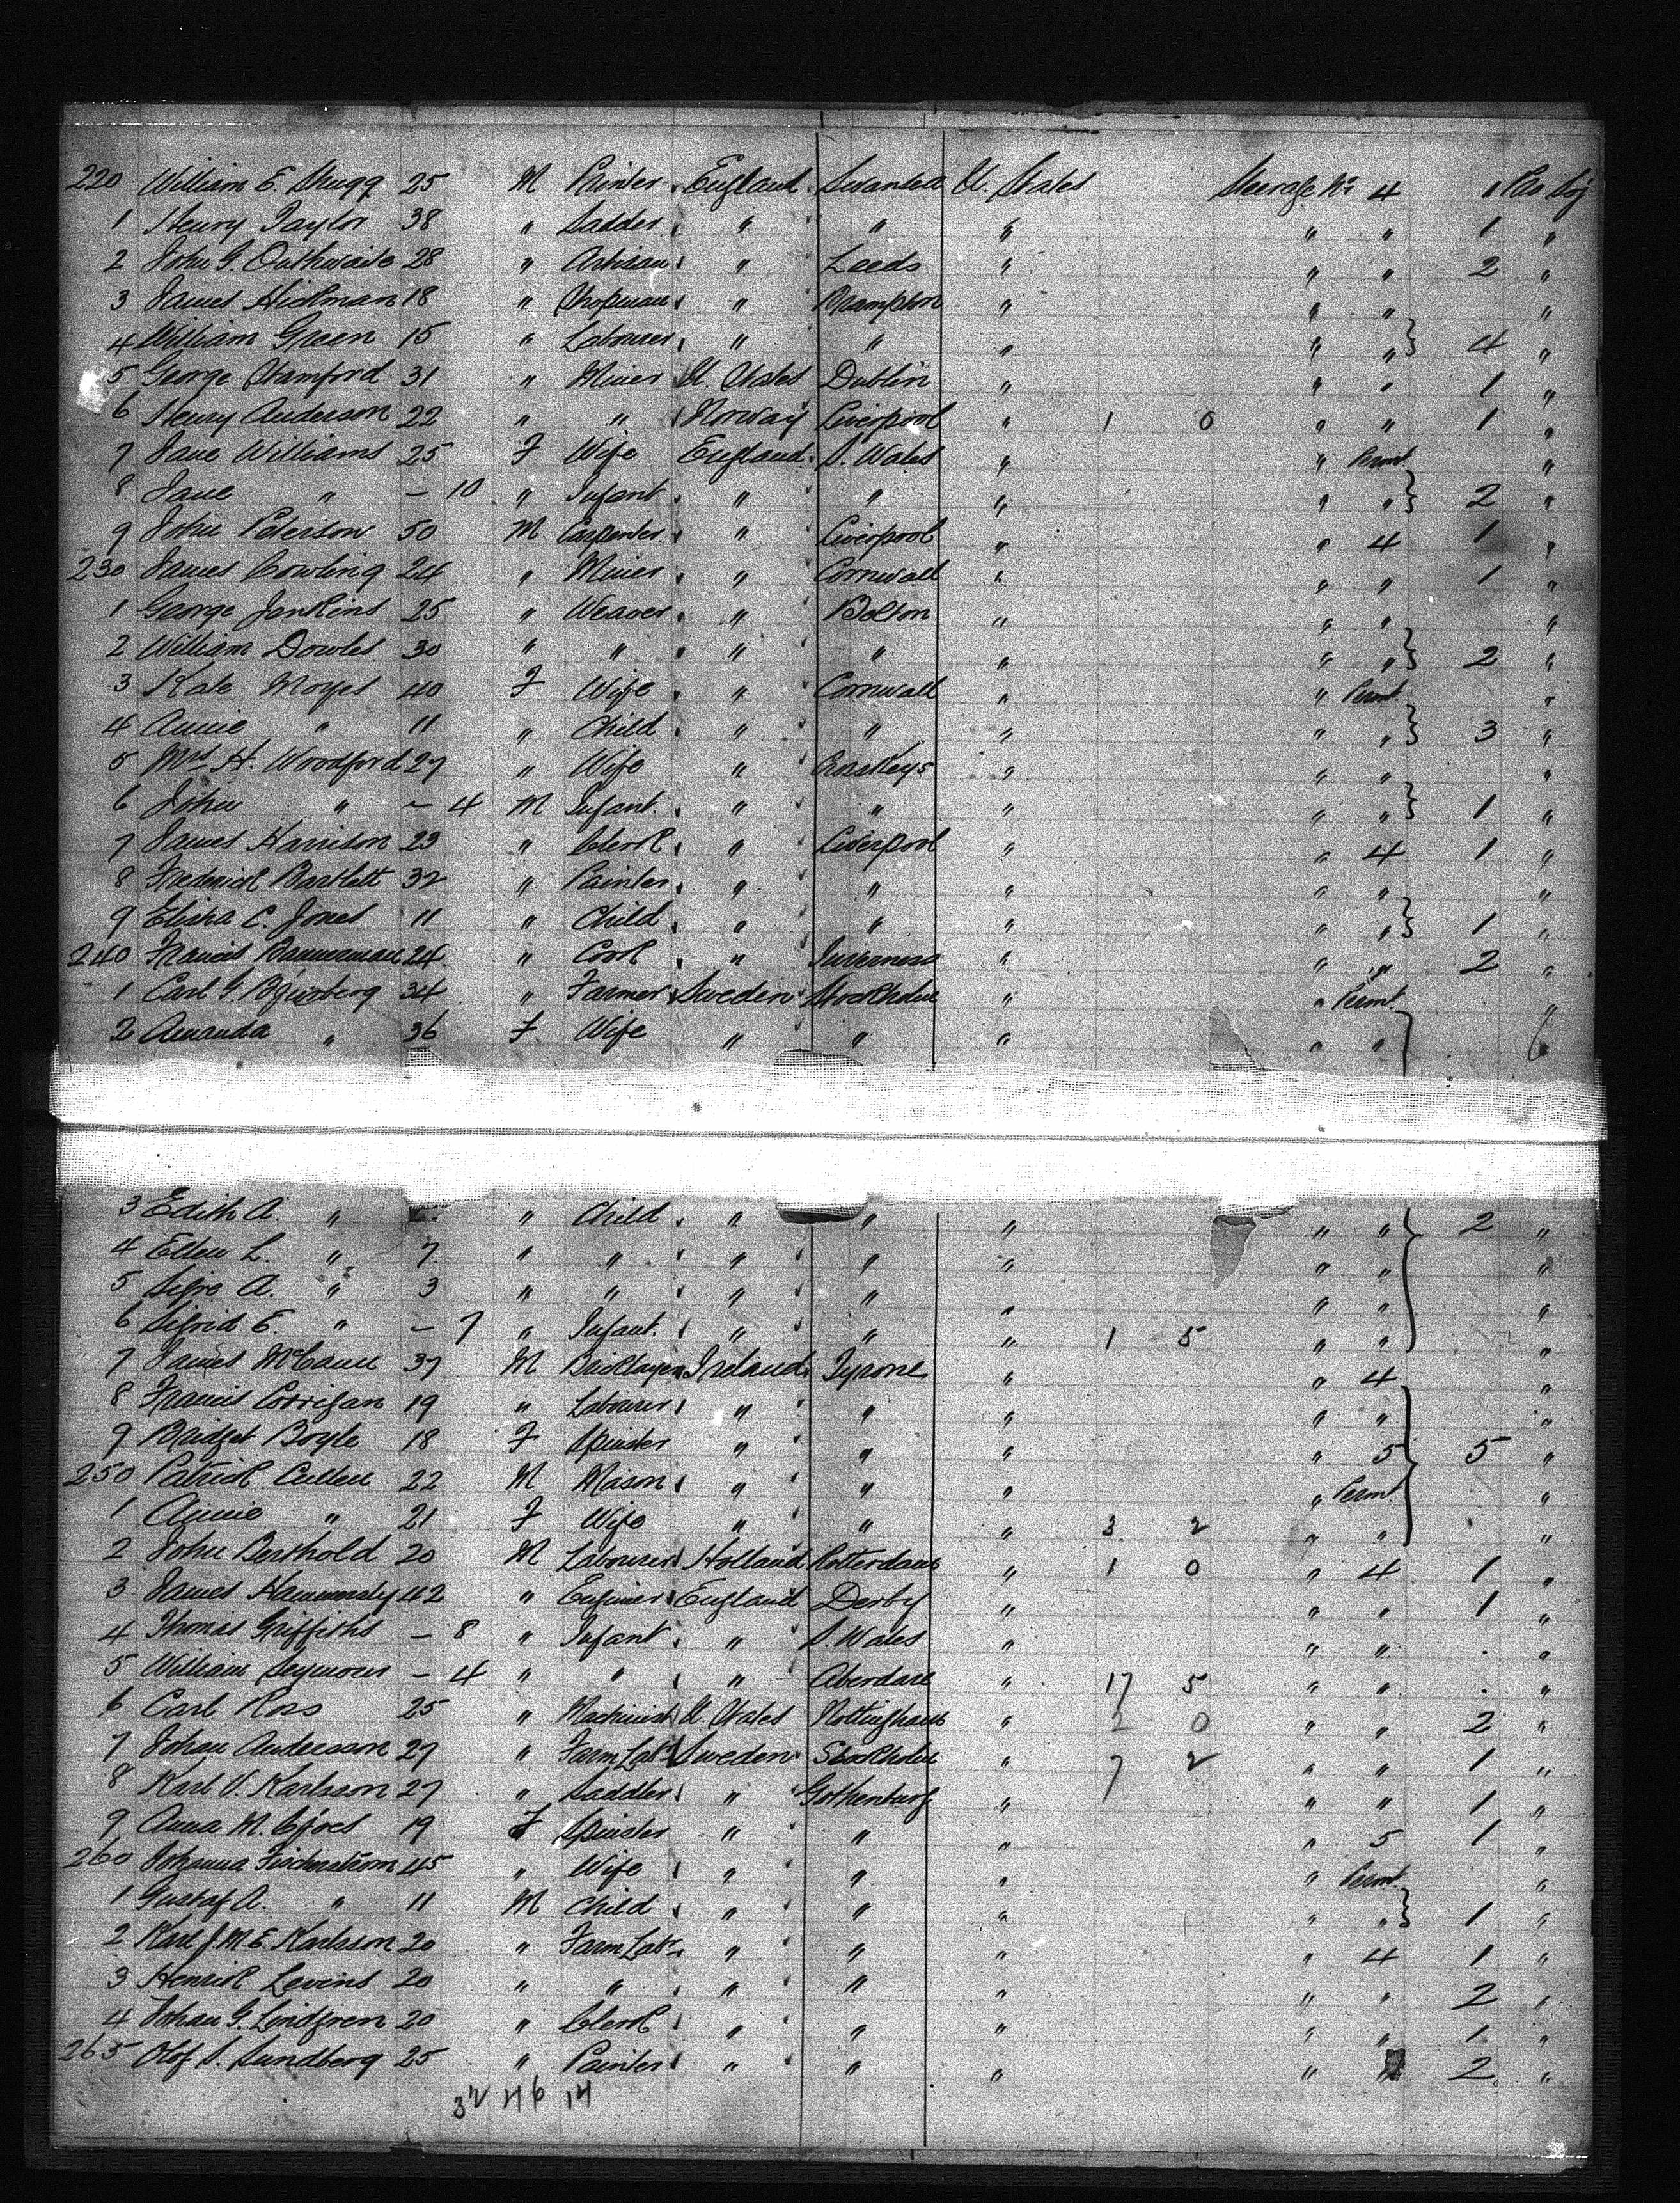 220 William E. Mugg 25 M Printer England Swansea U. States Steerage No 4 1 Pro Soj
1 Henry Taylor 38 " Sadder " " " " " 1 "
2 John G. Outhwaite 28 " Artisan " Leeds " " " 2 "
3 James Hickman 18 " " Brampton " " " "
4 William Green 15 " Labourer " " " " " } 4 "
5 George Stamford 31 " Miner U. States Dublin " " " 1 "
6 Henry Anderson 22 " " Norway Liverpool " 1 0 " " 1 "
7 Jane Williams 25 F Wife England S. Wales " " Permt "
8 Jane " – 10 " Infant " " " " " } 2 "
9 John Peterson 50 M Carpenter " Liverpool " " 4 1 "
230 James Cowling 24 " Miner " Cornwall " " " 1 "
1 George Jenkins 25 " Weaver " Bolton " " " "
2 William Dowles 30 " " " " " " " } 2 "
3 Kate Moyes 40 F Wife " Cornwall " " Permt "
4 Annie " 11 " Child " " " " " } 3 "
5 Mrs H. Woodford 27 " Wife " " " " "
6 John " – 4 M Infant " " " " " } 1 "
7 James Harrison 23 " Clerk " Liverpool " " 4 1 "
8 Frederick Bartlett 32 " Painter " " " " " "
9 Elisha C. Jones 11 " Child " " " " " } 1 "
240 Francis Bannerman 24 " Cook " Inverness " " " 2 "
1 Carl G. 34 " Farmer Sweden Stockholm " " Permt "
2 Amanda " 36 F Wife " " " " "
3 Edith A. " " Child " " " " " 2 "
4 Ellen L. " 7 " " " " " " " "
5 Signe A. " 3 " " " " " " " "
6 Sigrid E. " – 7 " Infant " " " 1 5 " " "
7 James McCann 37 M Bricklayer Ireland Tyrone " " 4 "
8 Francis Corrigan 19 " Labourer " " " " " "
9 Bridget Boyle 18 F Spinster " " " " 5 } 5 "
250 Patrick Cullen 22 M Mason " " " " Permt "
1 Annie " 21 F Wife " " " 3 2 " " "
2 John Berthold 20 M Labourer Holland Rotterdam " 1 0 " 4 1 "
3 James Hammersly 42 " Engineer England Derby " " " 1 "
4 Thomas Griffiths – 8 " Infant " S. Wales " " " "
5 William Seymour – 4 " " " Aberdare " 17 5 " " "
6 Carl Ross 25 " Machinist U. States Nottingham " 2 0 " " 2 "
7 Johan Andersson 27 " Farm Labr Sweden Stockholm " 7 2 " " 1 "
8 Karl V. Karlsson 27 " Saddler " Gothenburg " " " 1 "
9 Anna M. 19 F Spinster " " " " 5 1 "
260 Johanna 45 " Wife " " " " Permt "
1 Gustaf A. " 11 M Child " " " " " } 1 "
2 Karl J. M. E. Karlsson 20 " Farm Labr " " " " 4 1 "
3 Henrick Levins 20 " " " " " " " 2 "
4 Johan G. Lindgren 20 " Clerk " " " " " 1 "
265 Olof S. Sundberg 25 " Painter " " " " " 2 "
32 46 14